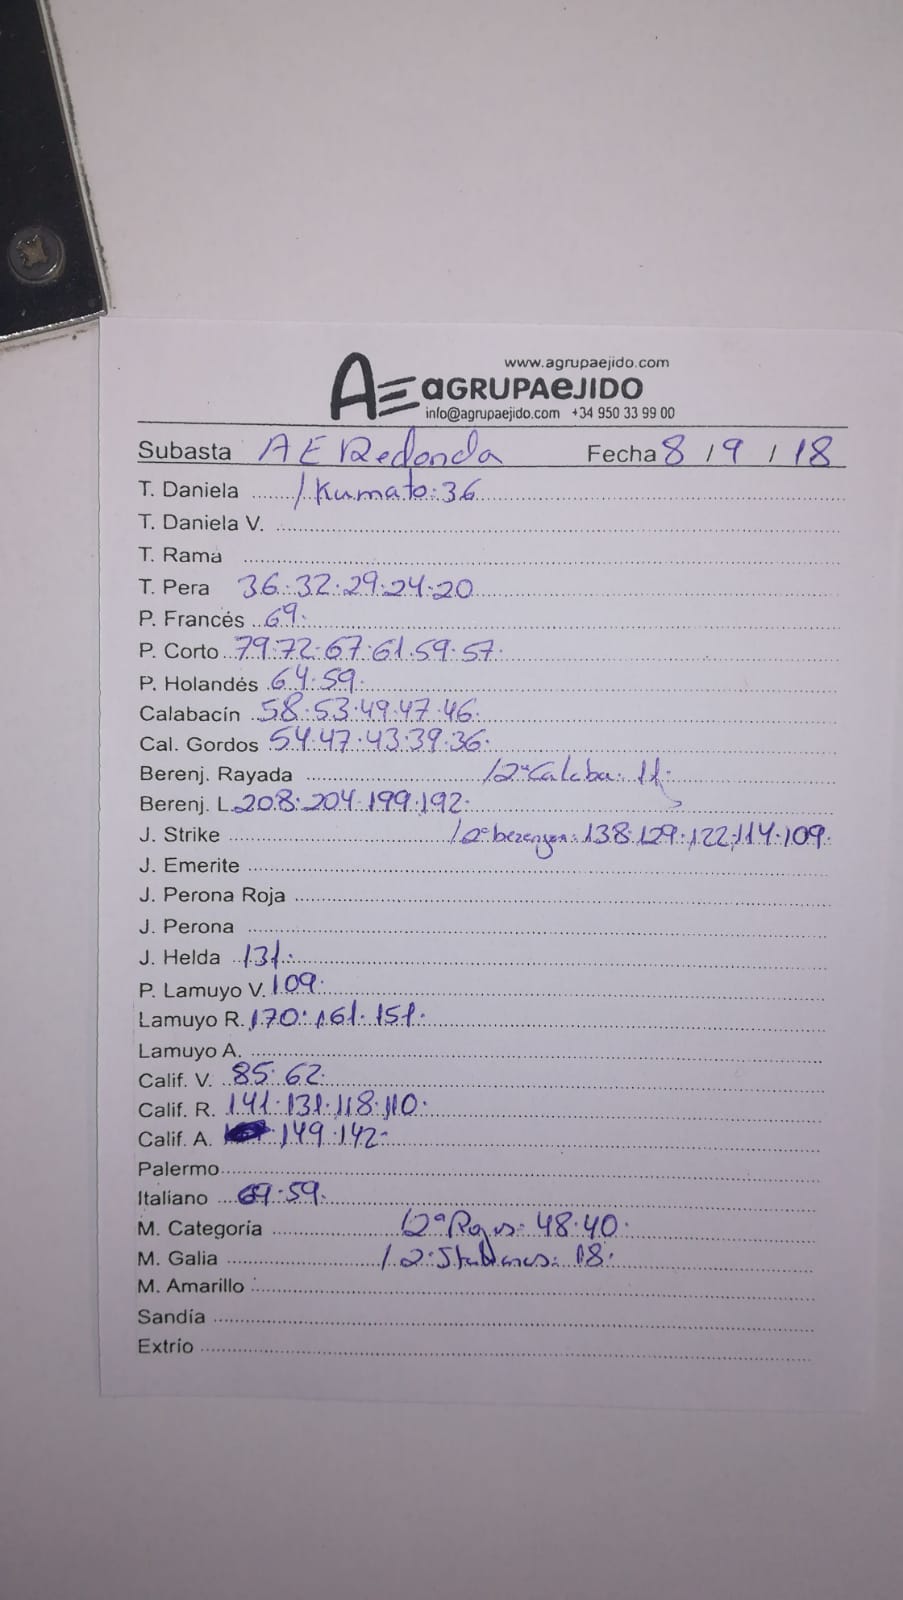 www.agrupaejido.com
AE aGRUPAeJIDO
info@agrupaejido.com +34 950 33 99 00
Subasta AE Redonda Fecha 8 / 9 / 18
T. Daniela / Kumato: 36
T. Daniela V.
T. Rama
T. Pera 36·32·29·24·20
P. Francés 69·
P. Corto 79·72·67·61·59·57·
P. Holandés 64·59·
Calabacín 58·53·49·47·46·
Cal. Gordos 54·47·43·39·36·
Berenj. Rayada /2ª Calaba: 11·
Berenj. L. 208·204·199·192·
J. Strike /2ª berenjena: 138·129·122·114·109·
J. Emerite
J. Perona Roja
J. Perona
J. Helda 131·
P. Lamuyo V. 109·
Lamuyo R. 170·161·151·
Lamuyo A.
Calif. V. 85·62·
Calif. R. 141·131·118·110·
Calif. A. 149·142·
Palermo
Italiano 69·59·
M. Categoría /2ª Rojos: 48·40·
M. Galia /2ª Italianos: 18·
M. Amarillo
Sandía
Extrío